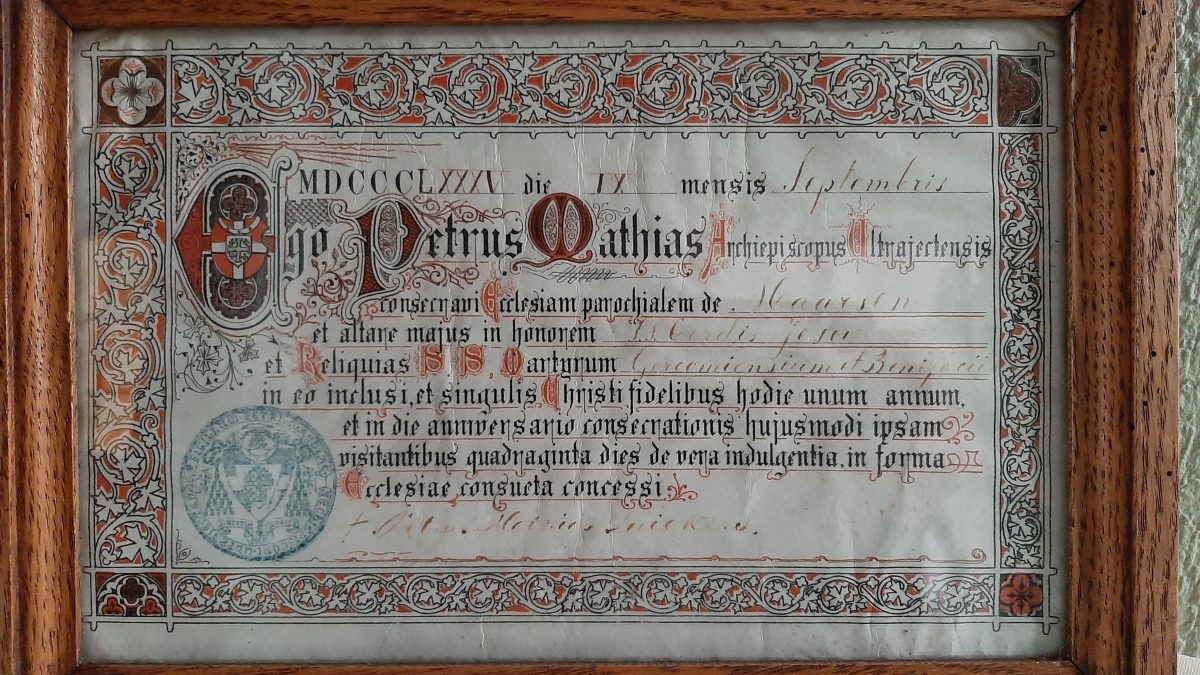 MDCCCLXXXV die IX mensis Septembris
Ego Petrus Mathias Archiepiscopus Ultrajectensis
consecravi Ecclesiam parochialem de Maarsen
et altare majus in honorem S. Cordis Jesu
et Reliquias S S. Martyrum Gorcomiensium et Bonifacii
in eo inclusi, et singulis Christi fidelibus hodie unum annum,
et in die anniversario consecrationis hujusmodi ipsam
visitantibus quadraginta dies de vera indulgentia, in forma
Ecclesiae consueta concessi.
† Petrus Mathias Snickers.